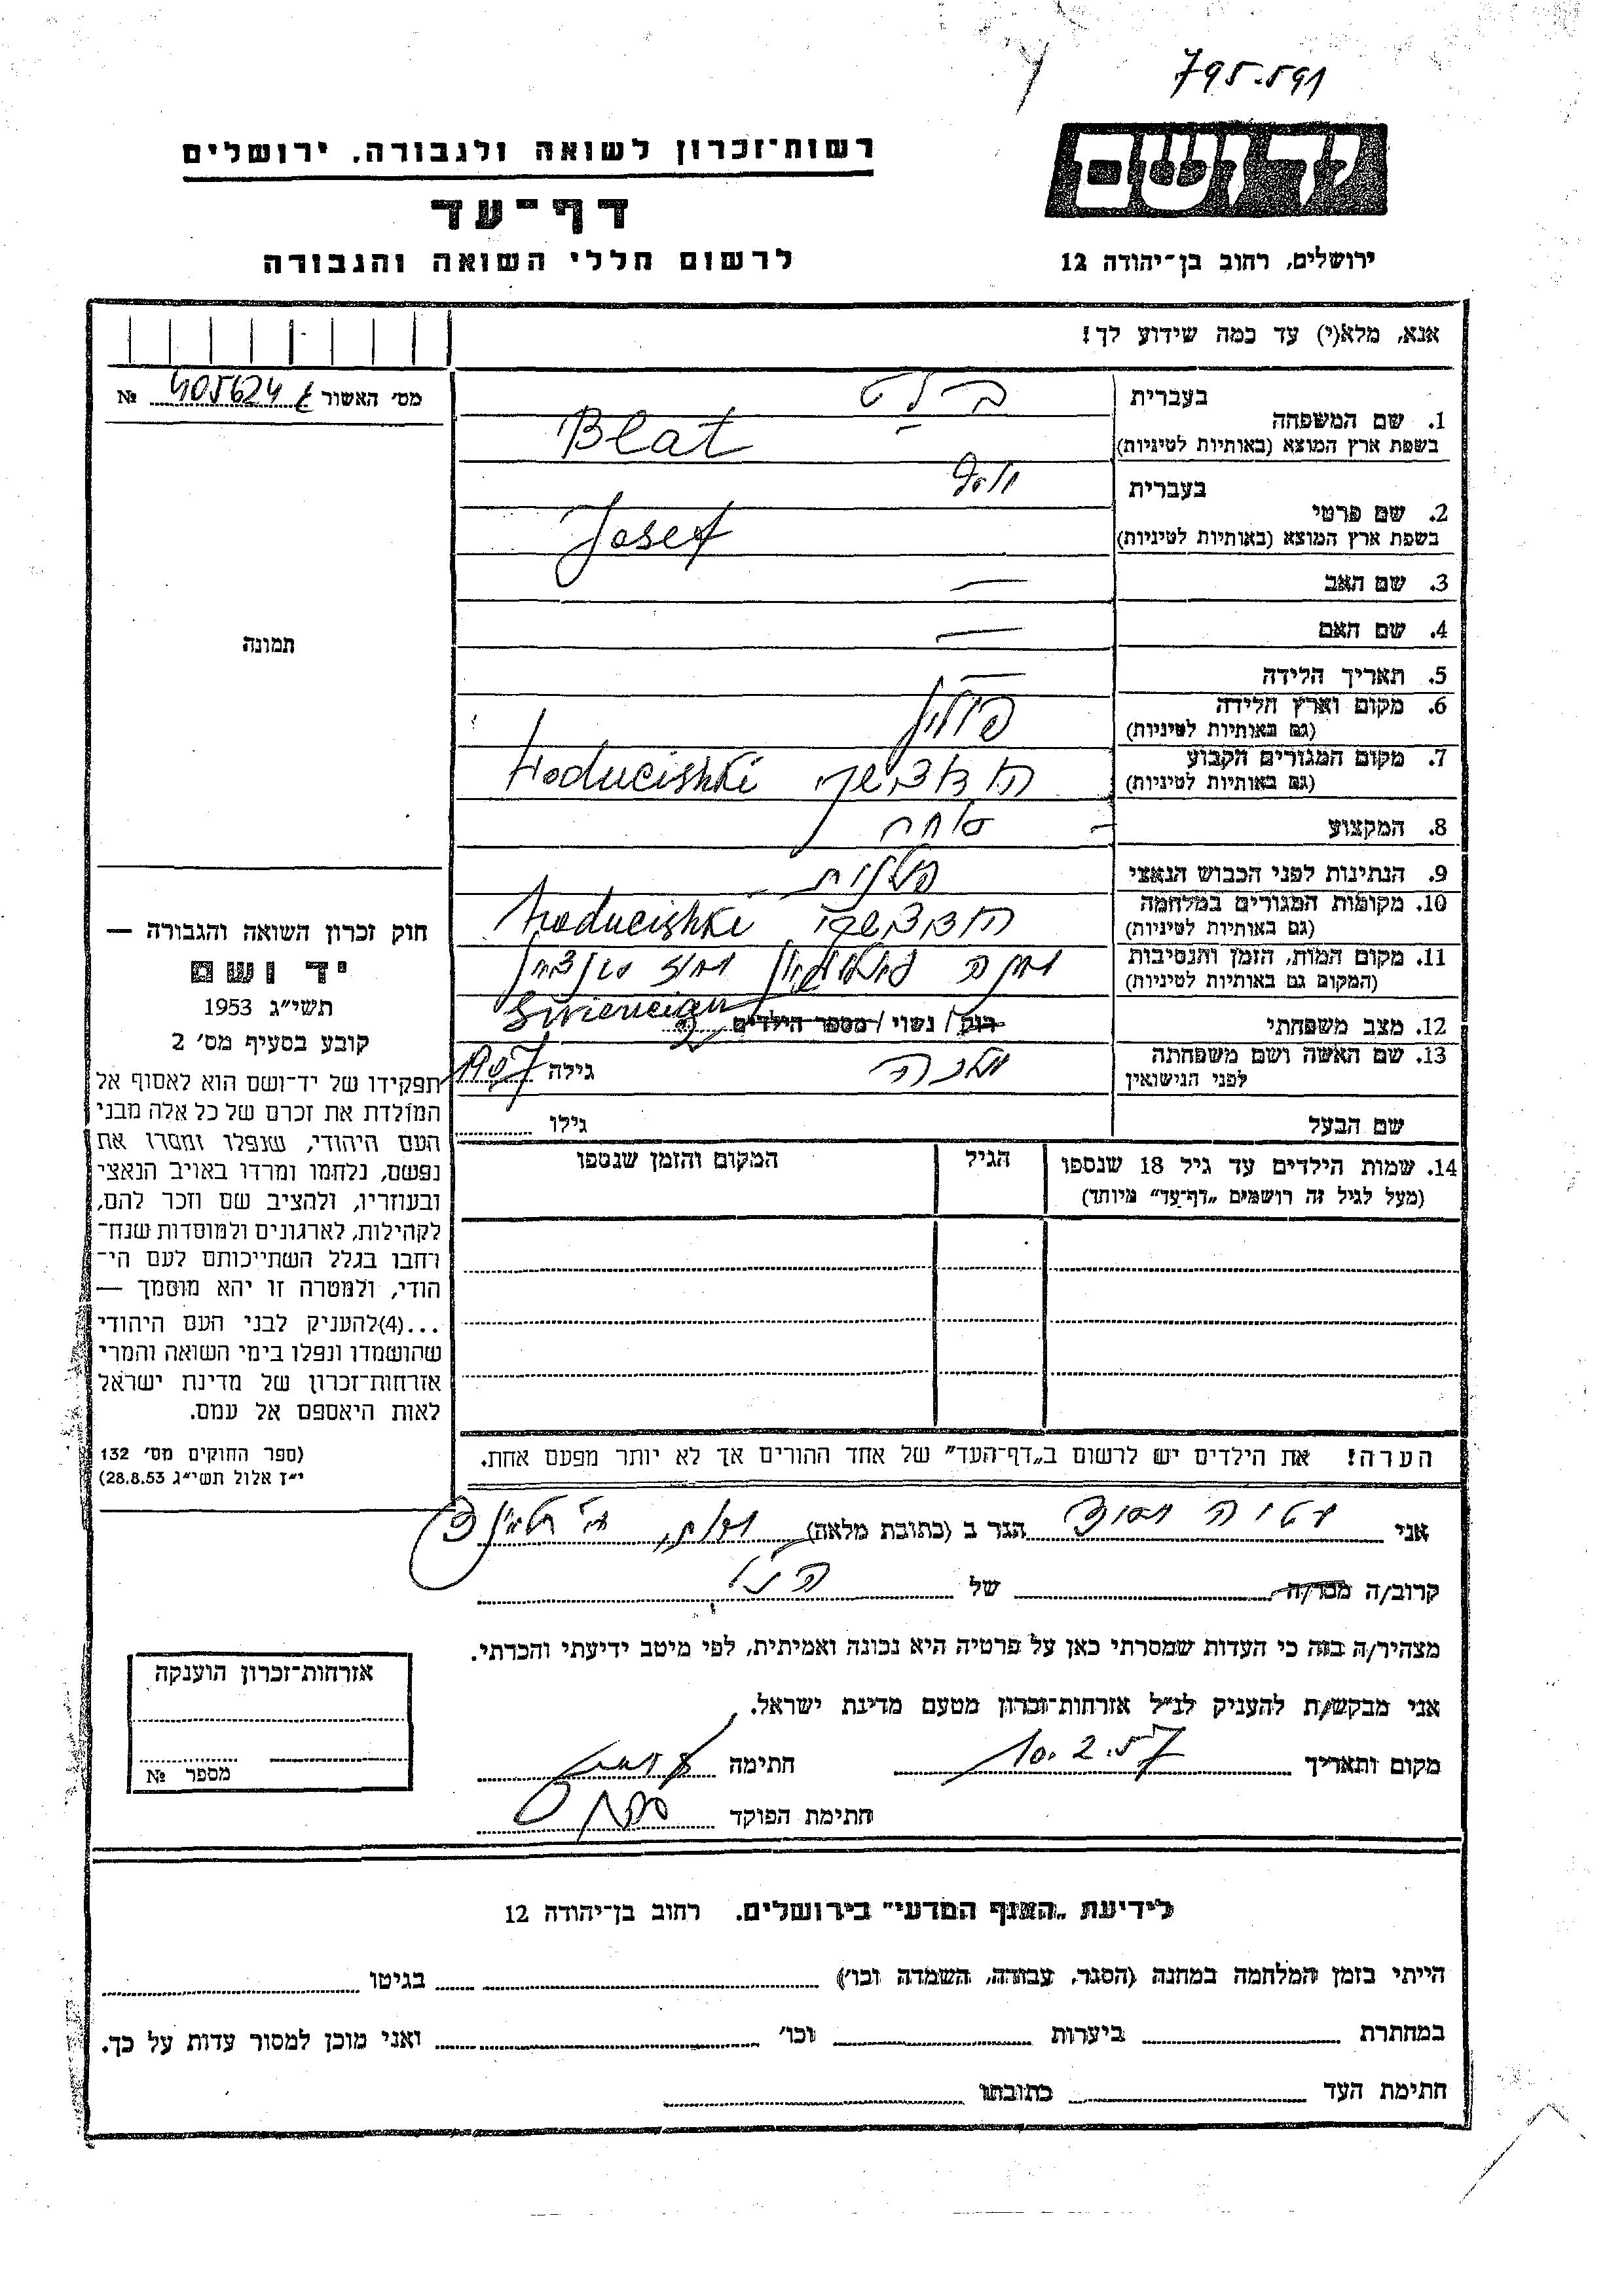 795.591
יד ושם
רשות־זכרון לשואה ולגבורה. ירושלים
דף־עד
לרשום חללי השואה והגבורה
ירושלים, רחוב בן־יהודה 12
אנא, מלא(י) עד כמה שידוע לך!
מס׳ האשור 405624 №
תמונה
1. שם המשפחה
בעברית בלט
בשפת ארץ המוצא (באותיות לטיניות) Blat
2. שם פרטי
בעברית יוסף
בשפת ארץ המוצא (באותיות לטיניות) Josef
3. שם האב —
4. שם האם —
5. תאריך הלידה —
6. מקום וארץ הלידה פולין
(גם באותיות לטיניות)
7. מקום המגורים הקבוע Hoducishki
(גם באותיות לטיניות)
8. המקצוע סוחר
9. הנתינות לפני הכבוש הנאצי פולנית
10. מקומות המגורים במלחמה Hoducishki
(גם באותיות לטיניות)
11. מקום המות, הזמן והנסיבות
(המקום גם באותיות לטיניות)
12. מצב משפחתי רוק / נשוי / מספר הילדים
13. שם האשה ושם משפחתה
לפני הנישואין
גילה 1907
שם הבעל גילו
14. שמות הילדים עד גיל 18 שנספו
(מעל לגיל זה רושמים „דף־עד״ מיוחד)
הגיל
המקום והזמן שנספו
הערה! את הילדים יש לרשום ב„דף־העד״ של אחד ההורים אך לא יותר מפעם אחת.
חוק זכרון השואה והגבורה —
יד ושם
תשי״ג 1953
קובע בסעיף מס׳ 2
תפקידו של יד־ושם הוא לאסוף אל
המולדת את זכרם של כל אלה מבני
העם היהודי, שנפלו ומסרו את
נפשם, נלחמו ומרדו באויב הנאצי
ובעוזריו, ולהציב שם וזכר להם,
לקהילות, לארגונים ולמוסדות שנח־
רחבו בגלל השתייכותם לעם הי־
הודי, ולמטרה זו יהא מוסמך —
...(4)להעניק לבני העם היהודי
שהושמדו ונפלו בימי השואה והמרי
אזרחות־זכרון של מדינת ישראל
לאות היאספם אל עמם.
(ספר החוקים מס׳ 132
י״ז אלול תשי״ג 28.8.53)
אני הגר ב (כתובת מלאה)
קרוב/ה מכר/ה של
מצהיר/ה בזה כי העדות שמסרתי כאן על פרטיה היא נכונה ואמיתית, לפי מיטב ידיעתי והכרתי.
אני מבקש/ת להעניק לנ״ל אזרחות־זכרון מטעם מדינת ישראל.
מקום ותאריך 10.2.57 חתימה
חתימת הפוקד
אזרחות־זכרון הוענקה
מספר №
לידיעת „האגף המדעי״ בירושלים. רחוב בן־יהודה 12
הייתי בזמן המלחמה במחנה (הסגר, עבודה, השמדה וכו׳) בגיטו
במחתרת ביערות וכו׳ ואני מוכן למסור עדות על כך.
חתימת העד כתובתו